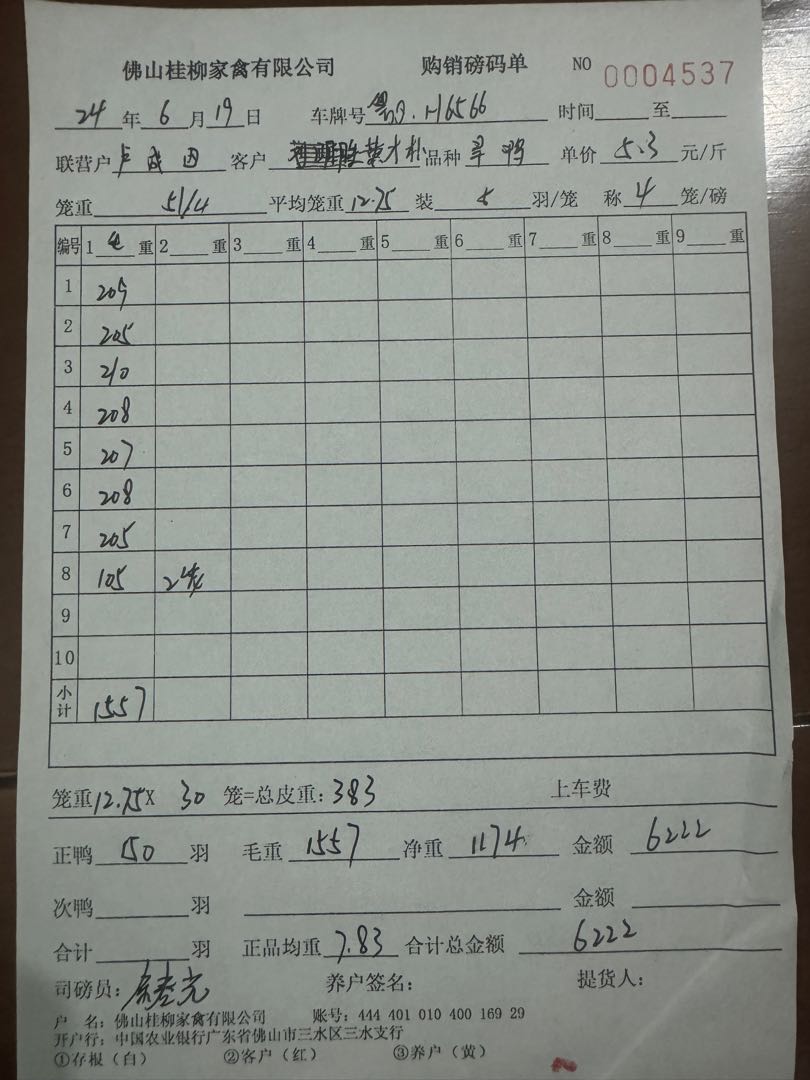 佛山桂柳家禽有限公司 购销磅码单 NO 0004537
24 年 6 月 19 日 车牌号 H6566 时间 至
联营户 客户 品种 单价 5.3 元/斤
笼重 51/4 平均笼重 12.75 装 5 羽/笼 称 4 笼/磅
编号 1 毛 重 2 重 3 重 4 重 5 重 6 重 7 重 8 重 9 重
1 209
2 205
3 210
4 208
5 207
6 208
7 205
8 105
9
10
小计 1557
笼重 12.75 X 30 笼=总皮重: 383 上车费
正鸭 150 羽 毛重 1557 净重 1174 金额 6222
次鸭 羽 金额
合计 羽 正品均重 7.83 合计总金额 6222
司磅员: 养户签名: 提货人:
户 名: 佛山桂柳家禽有限公司 账号: 444 401 010 400 169 29
开户行: 中国农业银行广东省佛山市三水区三水支行
①存根（白） ②客户（红） ③养户（黄）